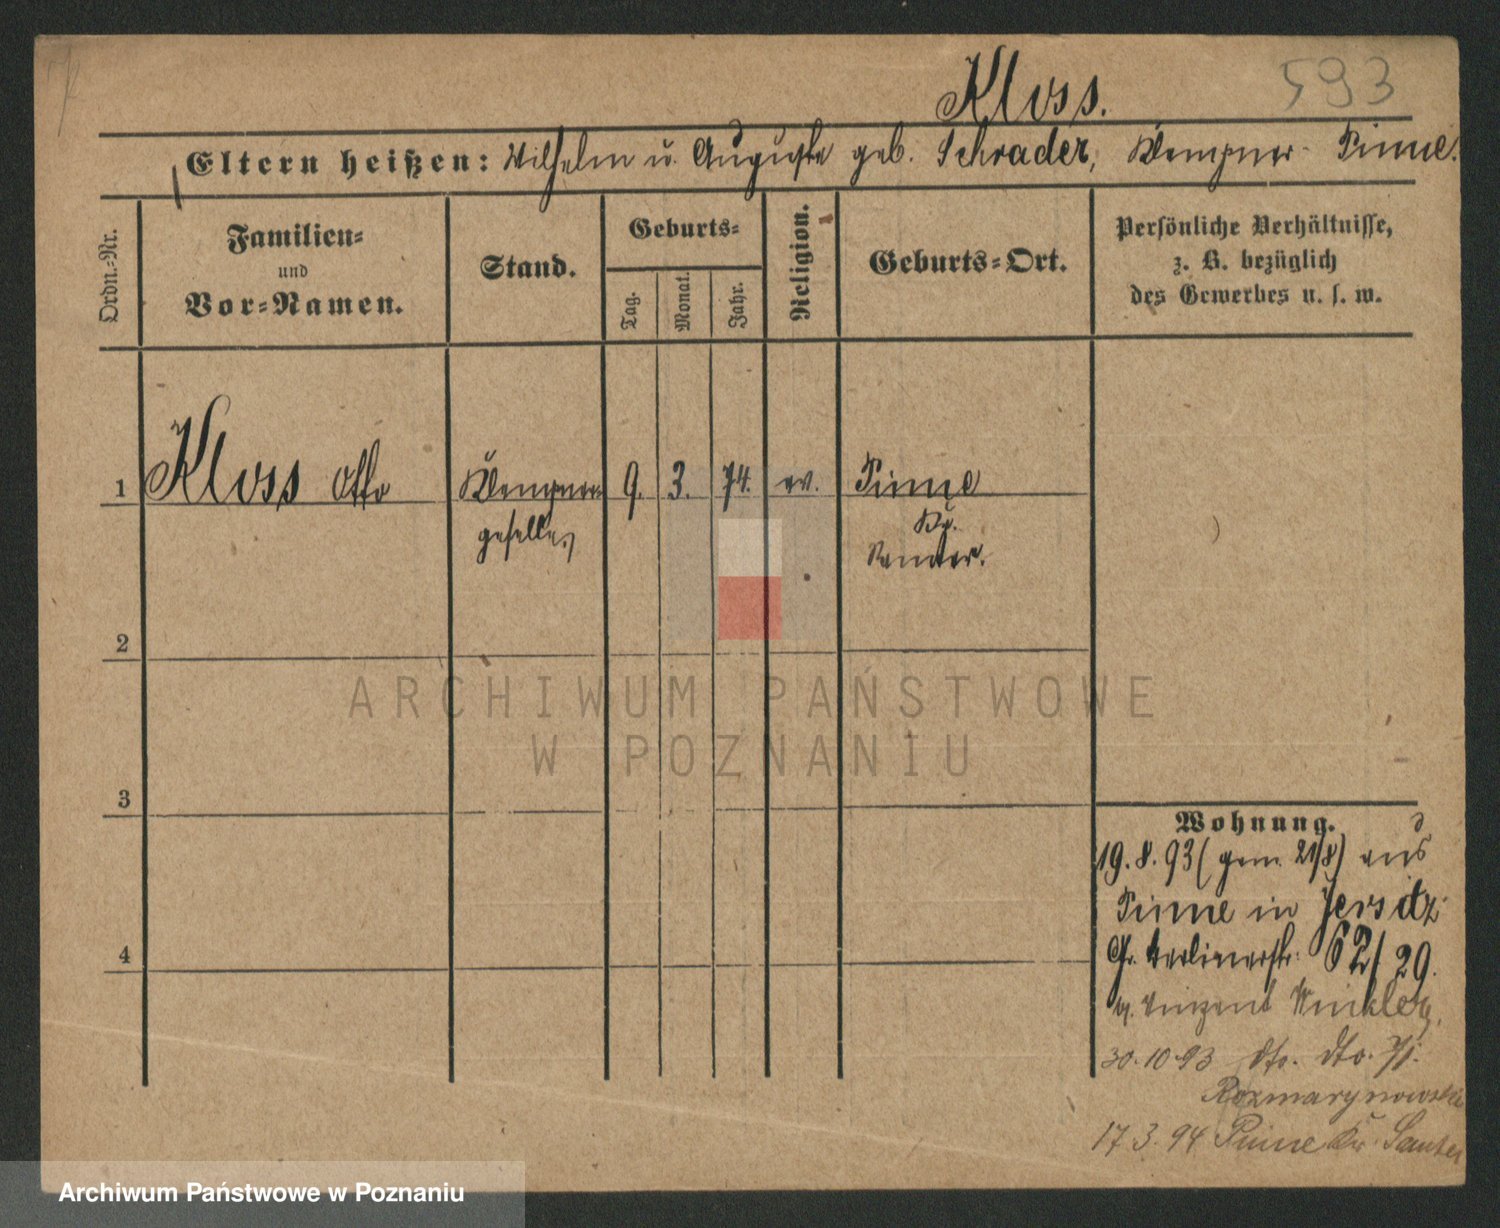 593
Kloss.
Eltern heißen: Wilhelm u. Auguste geb. Schrader, Klempner - Pinne.
Ordn.-Nr.
Familien-
und
Vor-Namen.
Stand.
Geburts-
Tag.
Monat.
Jahr.
Religion.
Geburts-Ort.
Persönliche Verhältnisse,
z. B. bezüglich
des Gewerbes u. s. w.
1 Kloss Otto Klempner- 9. 3. 74. ev. Pinne
geselle
Kr.
Samter.
2
ARCHIWUM PAŃSTWOWE
W POZNANIU
3
4
Wohnung.
19.8.93 (gem. 21/8) aus
Pinne in Jersitz
Gr. Berlinerstr. 62/29.
b. Vinzent Winkler,
30.10.93 dto. dto.
Rozmarynowski
17.3.94 Pinne Kr. Samter
Archiwum Państwowe w Poznaniu